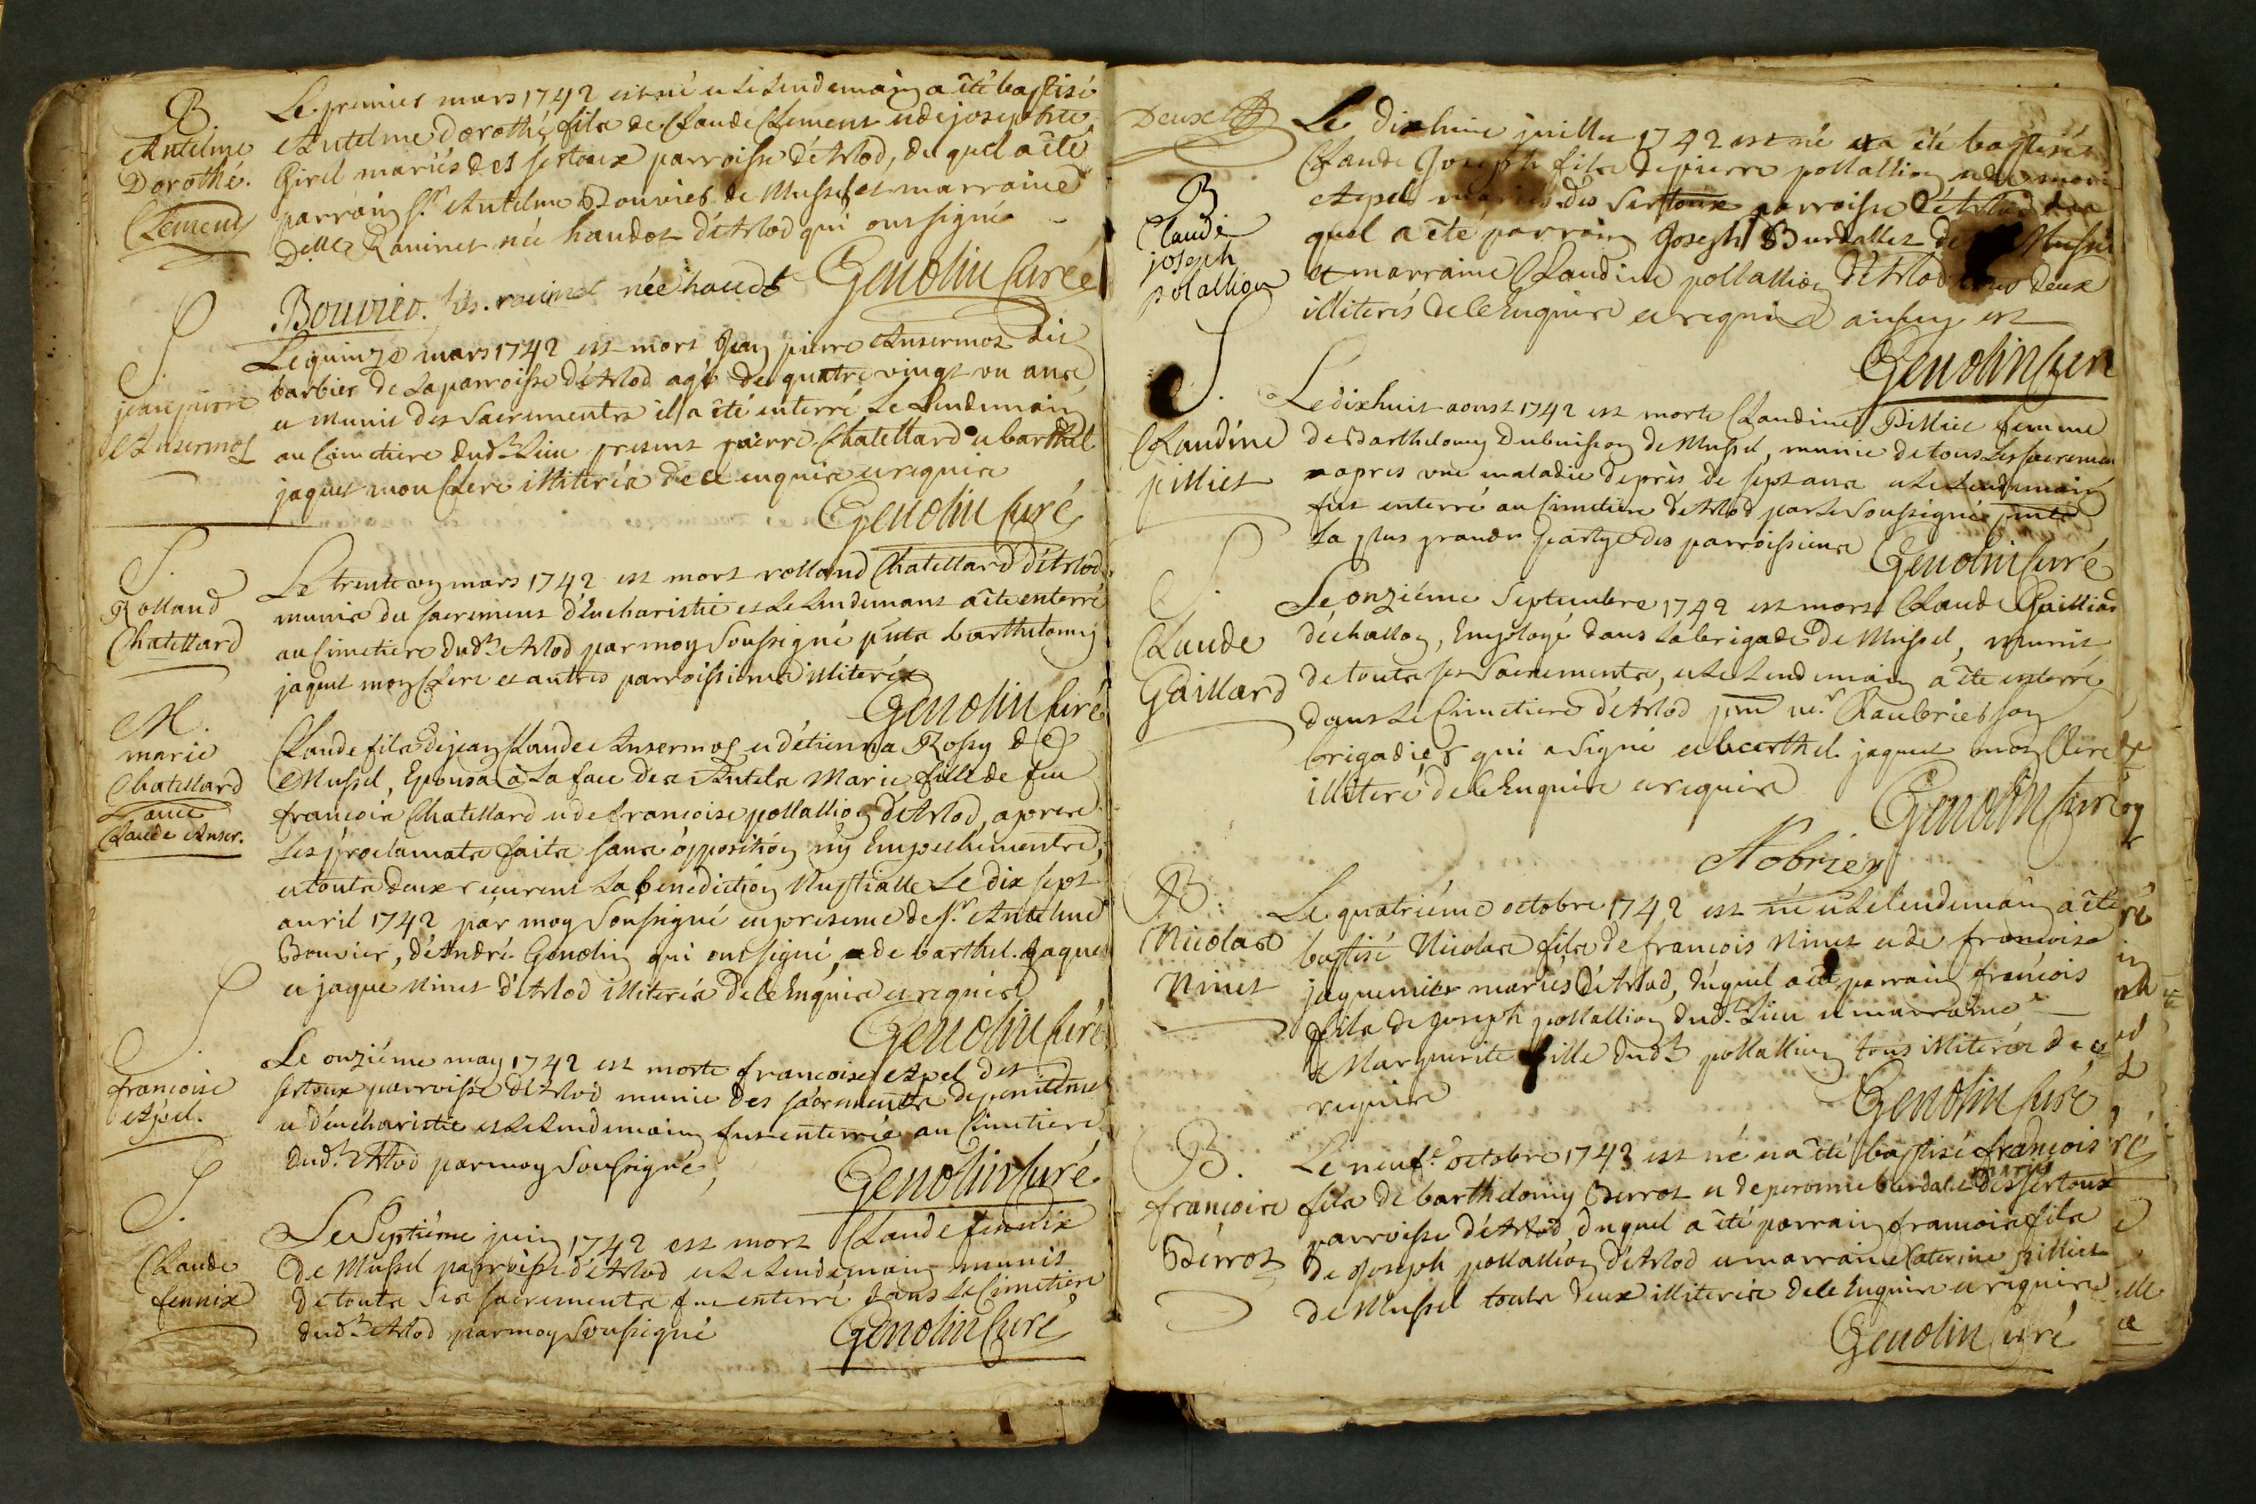 B
Antelme
Dorothé.
Clement
Le premier mars 1742 est né et le lendemain a été baptisé
Antelme dorothé fils de Claude Clement et de josephte
Girel mariés des sertoux parroisse d'Arlod, duquel a été
parrain Sr. Antelme Bouvier de Mussel et marraine
Delle Raninet née handot d'Arlod qui ont signé
Bouvier. née Genolin Curé
S.
jean pierre
Ansermoz
Le quinze mars 1742 est mort Jean pierre Ansermoz dit
barbier de la parroisse d'Arlod agé de quatre vingt un ans
et munis des Sacrements il a été enterré le lendemain
au Cimetiere dudt. Lieu present pierre Chatellard et barthel
jaquet mon Clerc illiterés de ce enquis et requis
Genolin Curé
S.
Rolland
Chatellard
Le trente mars 1742 est mort rolland Chatellard d'Arlod
munis du sacrement d'Eucharistie et le lendemant a été enterré
au Cimetiere dudt. Arlod par moy Soussigné pnts barthelomy
jaquet mon Clerc et autres parroissiens illiterés
Genolin Curé
M.
marie
Chatellard
avec
Claude Anser.
Claude fils de jean Claude Ansermoz et d'étienna Rossy de
Mussel, Epousa à la face des Autels Marie fille de feu
francois Chatellard et de francoise pollallion d'Arlod, apres
les proclamats faits sans opposition ny Empechements,
et touts deux reçurent la benediction Nuptialle Le dix sept
avril 1742 par moy Soussigné en presence de Sr. Antelme
Bouvier, d'André Genolin qui ont signé, et de barthel. Jaquet
et jaque Ninet d'Arlod illiterés de ce Enquis et requis
Genolin Curé
S.
francoise
Apel.
Le onziéme may 1742 est morte francoise Apel des
sertoux parroisse d'Arlod munie des sacrements de penitence
et d'eucharistie et le lendemain fut enterrée au Cimetiere
dudt. Arlod par moy Soussigné,
Genolin Curé
S.
Claude
fennix
Le Septiéme juin 1742 est mort Claude fennix
de Mussel parroisse d'Arlod et le lendemain munit
de touts ses sacrements fut enterré dans le Cimetiere
dudt. Arlod par moy Soussigné
Genolin Curé
Deux
B
Claude
joseph
polallion
Le dixhuit juillet 1742 est né et a été baptisé
Claude Joseph fils de pierre pollallion et de marie
Apel mariés des Sertoux parroisse d'Arlod du
quel a été parrain Joseph Burdallet de Mussel
et marraine Claudine pollallion d'Arlod tous deux
illiterés de ce Enquis et requis ainsy est
Genolin Curé
S.
Claudine
pilliet
Le dixhuit aoust 1742 est morte Claudine Pilliet femme
de Barthelomy Dubuisson de Mussel, munie de tous les sacremen
apres une maladie de près de sept ans et le lendemain
fut enterré au Cimetiere d'Arlod par le Soussigné
la plus grande partye des parroissiens Genolin Curé
S.
Claude
Gaillard
Le onziéme Septembre 1742 est mort Claude Gailliard
déchallon, Employé dans la brigade de Mussel, munit
de touts ses Sacrements, et le lendemain a été enterré
dans le Cimetiere d'Arlod pnt mr. Chaubrier son
brigadier qui a signé et barthel. jaquet mon Clerc
illiteré de ce Enquis et requis
Genolin Curé
B.
Nicolas
Ninet
Le quatriéme octobre 1742 est né et le lendemain a été
baptisé Nicolas fils de francois Ninet et de francoise
jaquemier mariés d'Arlod, duquel a été parrain francois
fils de joseph pollallion dudt. Lieu et marraine
Marguerite fille dudt pollallion tous illiterés de ce
requis
Genolin Curé
B.
francois
Berrot
Le neufe. octobre 1742 est né et a été baptisé francois
fils de barthelomy Berrot et de peronne burdalet mariés des sertoux
parroisse d'Arlod, duquel a été parrain francois fils
de Joseph pollallion d'Arlod et marraine Caterine pilliet
de Mussel touts deux illiterés de ce Enquis et requis
Genolin Curé